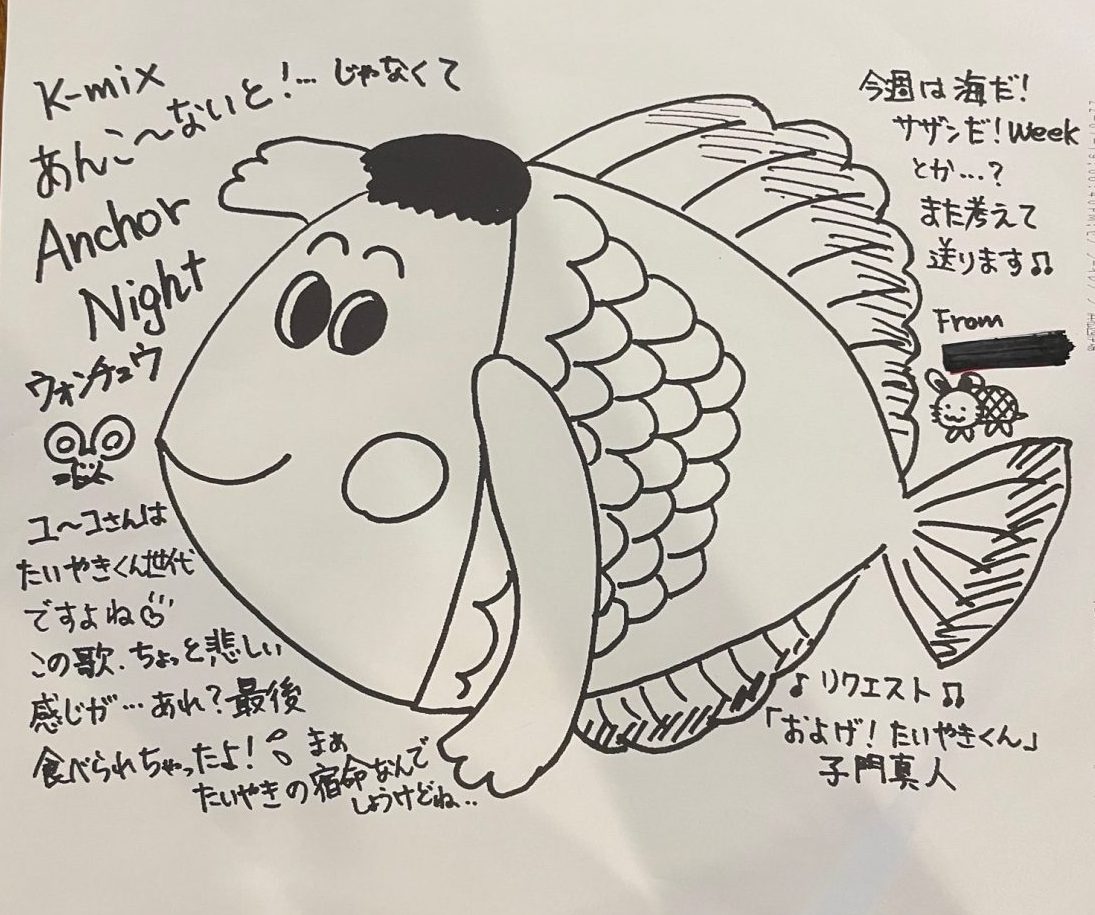 K-mix
あんこ〜ないと!…じゃなくて
Anchor
Night
ウォンチュウ
ユ〜コさんは
たいやきくん世代
ですよね
この歌、ちょっと悲しい
感じが…あれ?最後
食べられちゃったよ!
まぁ
たいやきの宿命なんで
しょうけどね..
今週は海だ!
サザンだ!Week
とか…?
また考えて
送ります♫
From
♪リクエスト♫
「およげ!たいやきくん」
子門真人